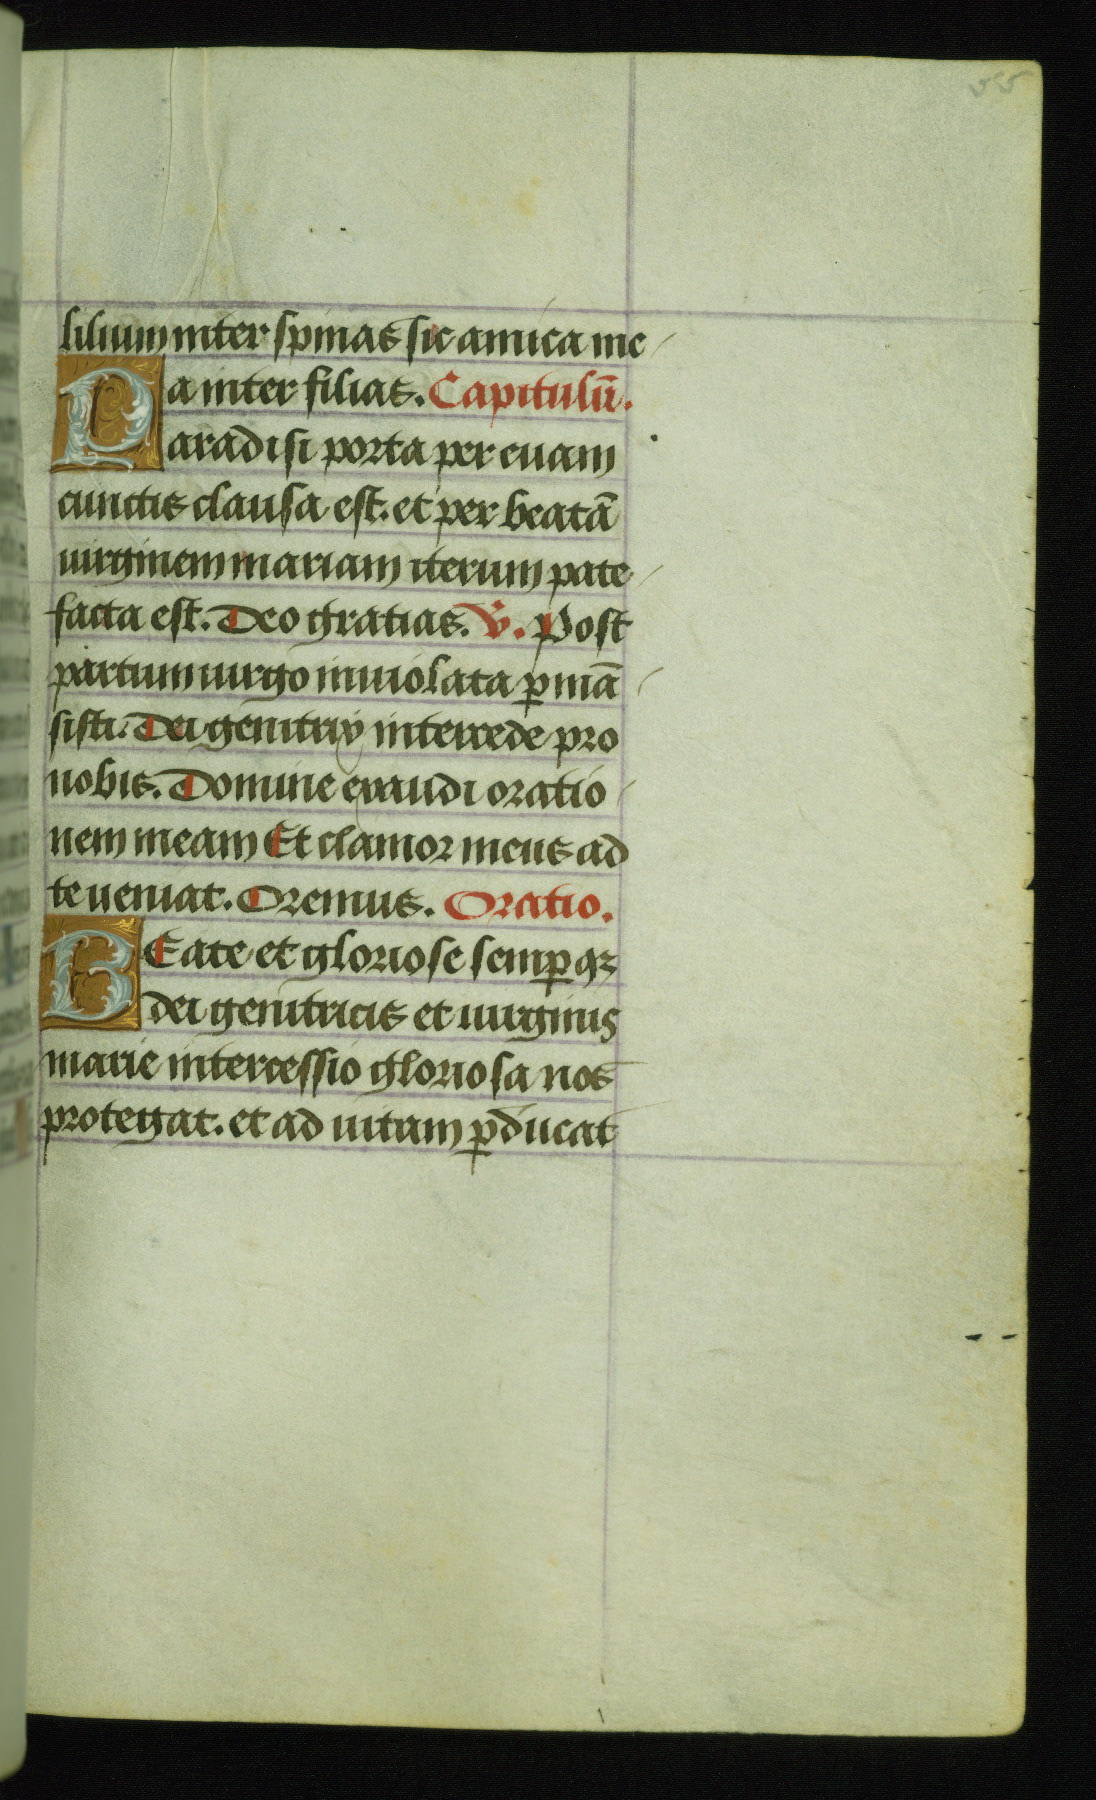 55
lilium inter spinas sic amica me
a inter filias. Capitulū.
Paradisi porta per euam
cunctis clausa est. et per beatā
uirginem mariam iterum pate
facta est. Deo gratias. V̄. Post
partum uirgo inuiolata ꝑmā
sisti. Dei genitrix intercede pro
nobis. Domine exaudi oratio
nem meam Et clamor meus ad
te ueniat. Oremus. Oratio.
BEate et gloriose semꝑqꝫ
dei genitricis et uirginis
marie intercessio gloriosa nos
protegat. et ad uitam ꝑducat